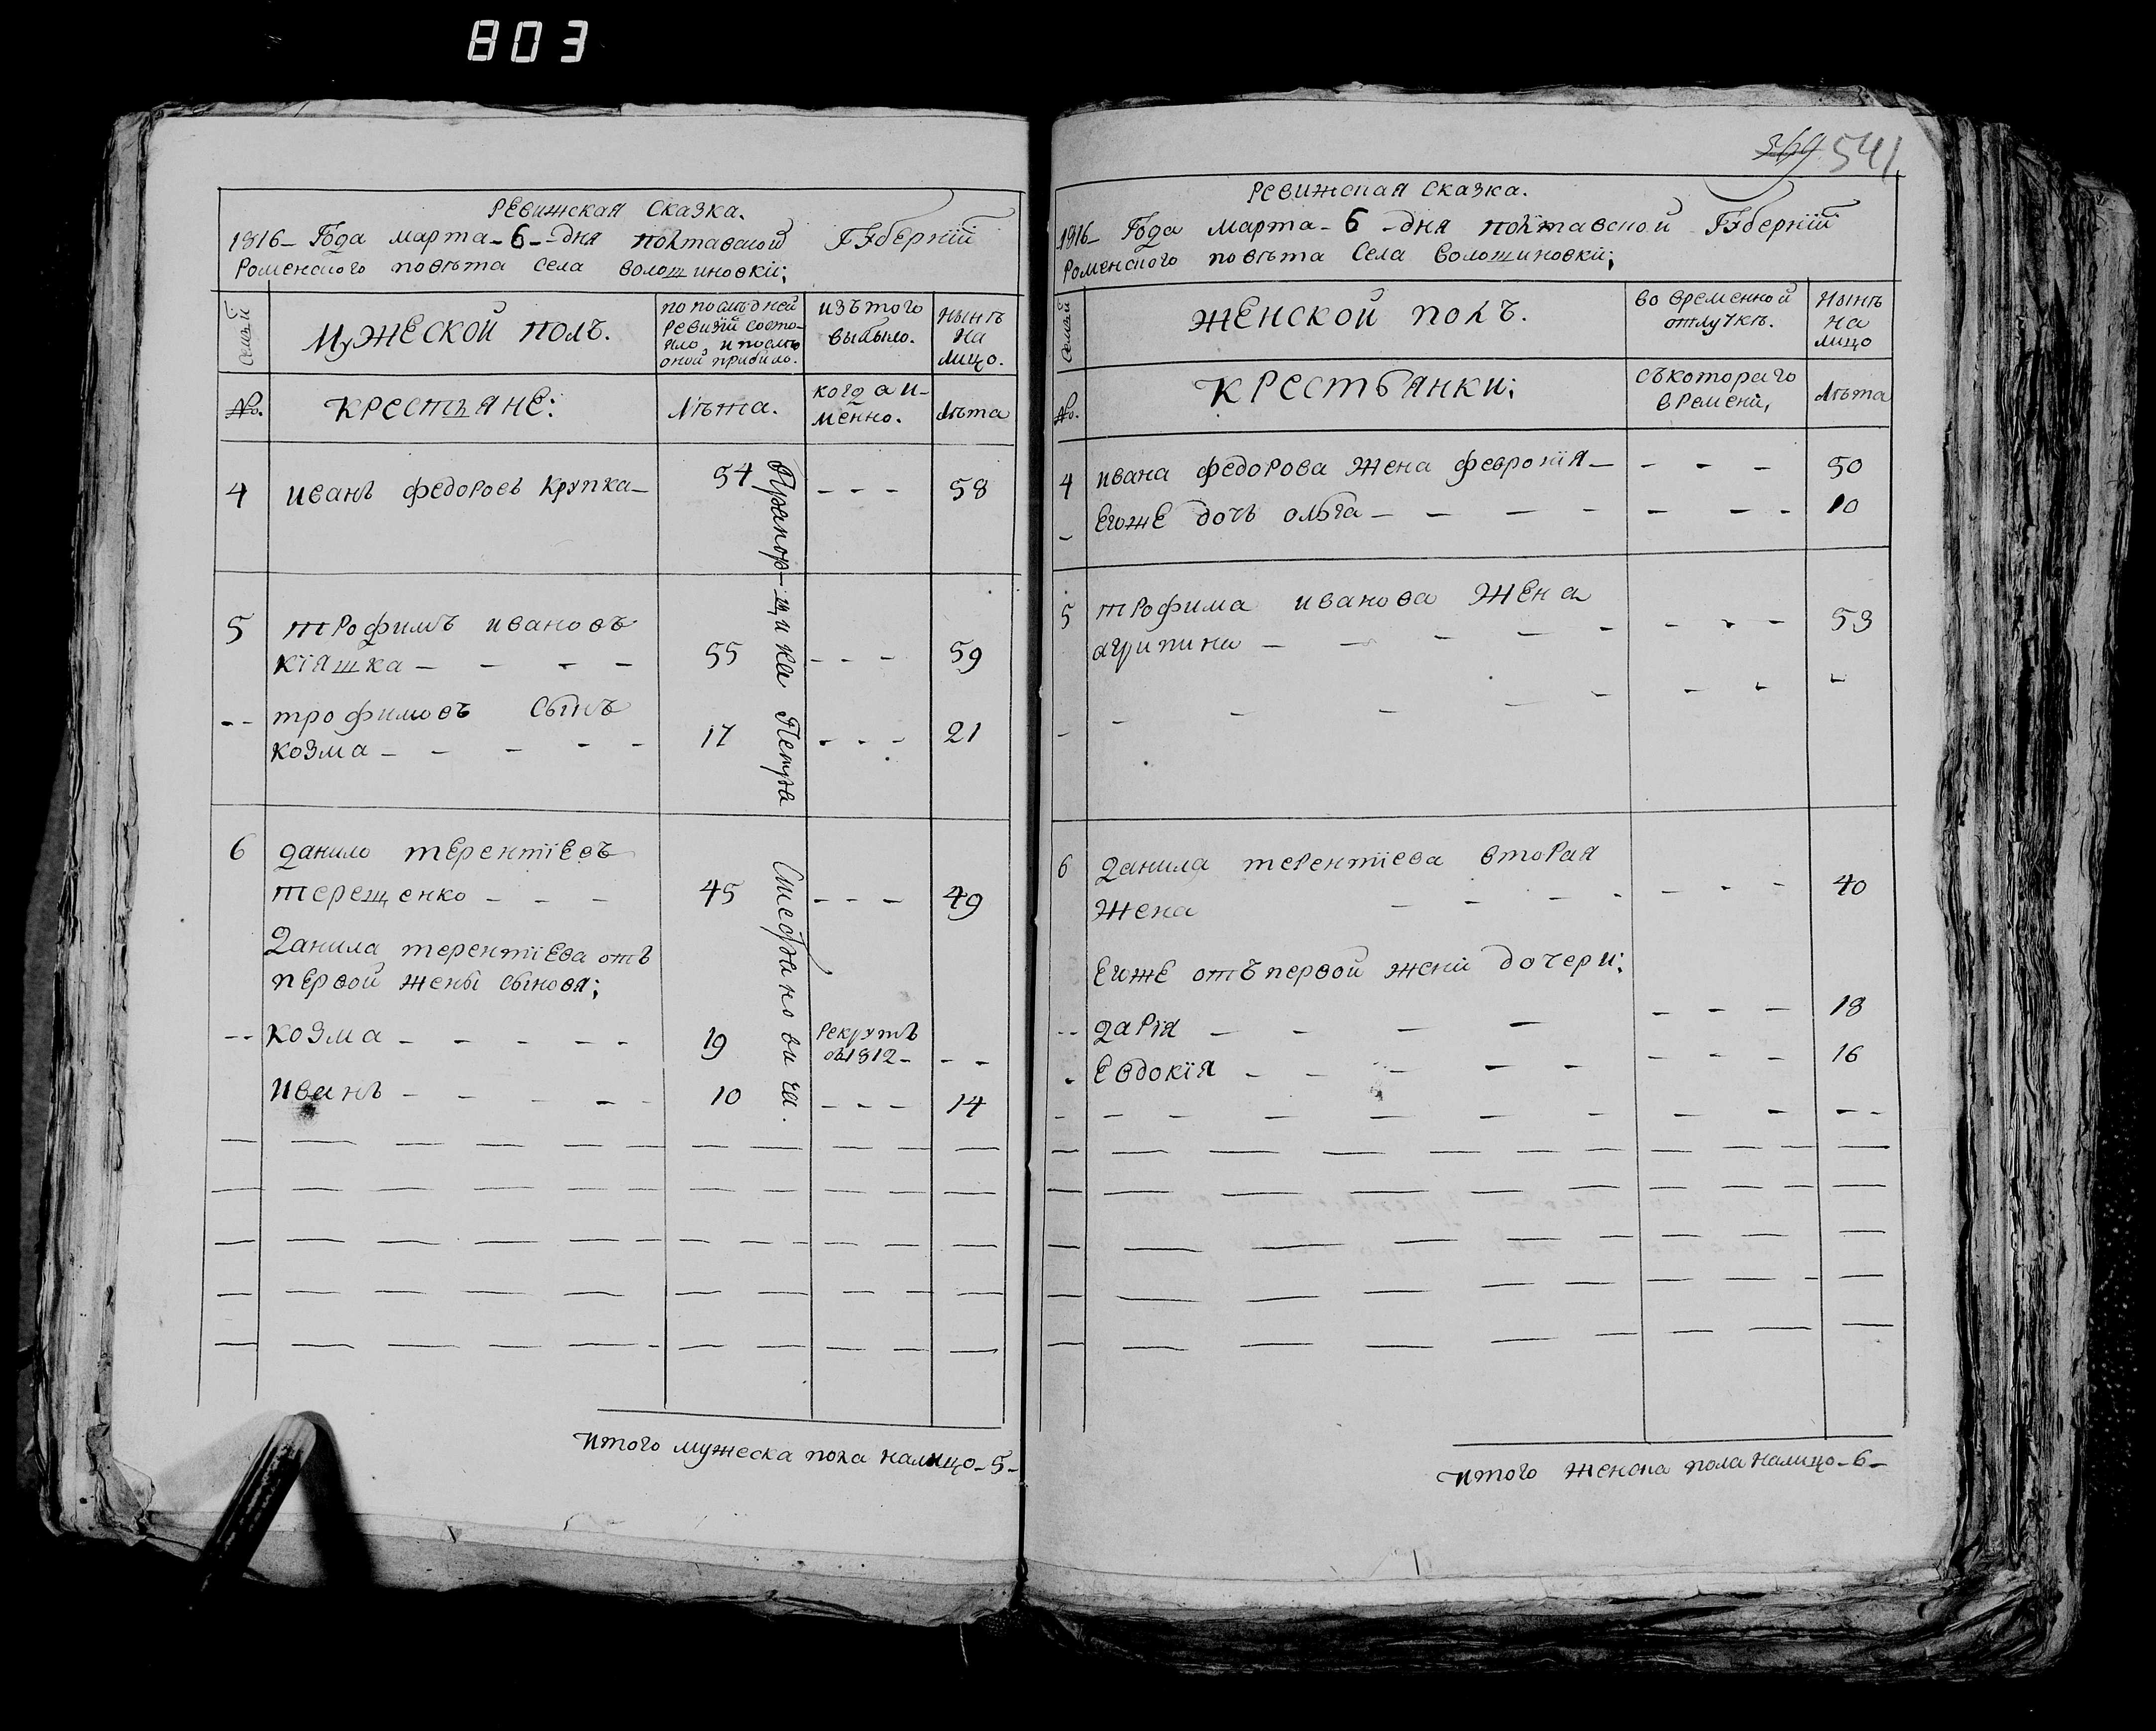 803
РЕвижская Сказка.
1816- Года марта-6--дня полтавской ГУбернїй
Роменского повѣта Села волошиновки;
Семьй
МУЖЕСКОЙ ПОЛЪ.
по послѣдней ревизїй состояло, и послѣ оной прибыло.
изъ того выбыло.
Нынѣ На лицо.
№.
КРЕСТЬЯНЕ:
Лѣта.
когда и-
менно.
Лѣта
4 иванъ федоровъ Крупка- 54 - - - 58
5 трофимъ ивановъ
кїяшка - - - - 55 - - - 59
-- трофимовъ Сынъ
козма - - - - - 17 - - - 21
6 данило терентїевъ
терещенко - - - 45 - - - 49
Данила терентїева отъ
первой жены сыновя;
-- козма - - - - - 19 рекрутъ
въ1812- - -
иванъ - - - - - 10 - - - 14
Прапор-щика Петра Стефановича.
Итого мужеска пола налицо-5-
541
РЕвижская Сказка.
1816- Года марта- 6 -дня полтавской ГУбернїй
Роменского повѣта Села волошиновки;
Семьй
ЖЕНСКОЙ ПОЛЪ.
во временной
отлучкѣ.
Нынѣ
На
лицо
№.
КРЕСТЬЯНКИ:
съкотораго
времени,
Лѣта
4 ивана федорова жена феvронїя- - - - 50
- ЕгожЕ дочь ольга - - - - - - - 10
5 трофима иванова ЖЕна
агрипина - - - - - - - - 53
6 Данила терентїева вторая
жена - - - - - - - 40
ЕгожЕ отъ первой жени дочери;
-- дарїя - - - - - - - 18
- Евдокїя - - - - - - - - 16
Итого женска пола налицо-6-